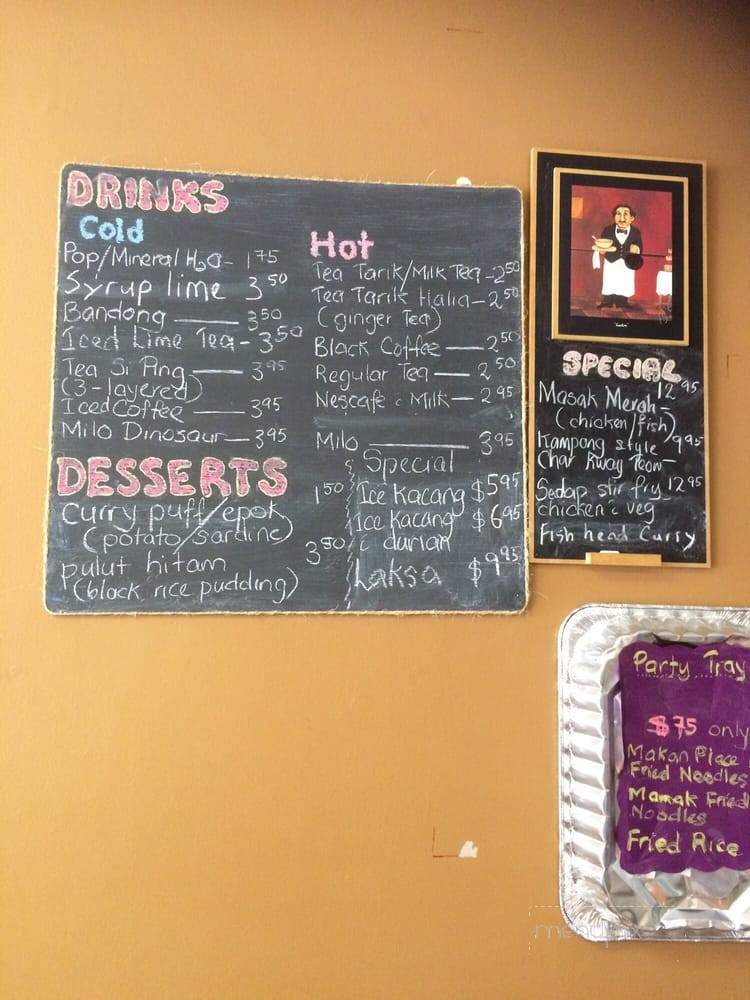 DRINKS
Cold
Pop/Mineral H2O - 1 75
Syrup lime 3 50
Bandong — 3 50
Iced Lime Tea - 3 50
Tea Si Ping — 3 95
(3-layered)
Iced Coffee — 3.95
Milo Dinosaur — 3 95
Hot
Tea Tarik/Milk Tea - 2 50
Tea Tarik Halia - 2 50
(ginger Tea)
Black Coffee — 2 50
Regular Tea — 2 50
Nescafe c Milk — 2 95
Milo — 3 95
DESSERTS
Curry puff/epok 1 50
(potato/sardine)
pulut hitam 3 50
(black rice pudding)
Special
Ice Kacang $5 95
Ice Kacang $6 95
c durian
Laksa $9.95
SPECIAL
Masak Merah - 12 95
(chicken/fish)
Kampong style 9 95
Char Kway Teow -
Sedap stir fry 12 95
chicken c veg
Fish head Curry
Party Tray
$75 only
Makan Place
Fried Noodles
Mamak Fried
Noodles
Fried Rice